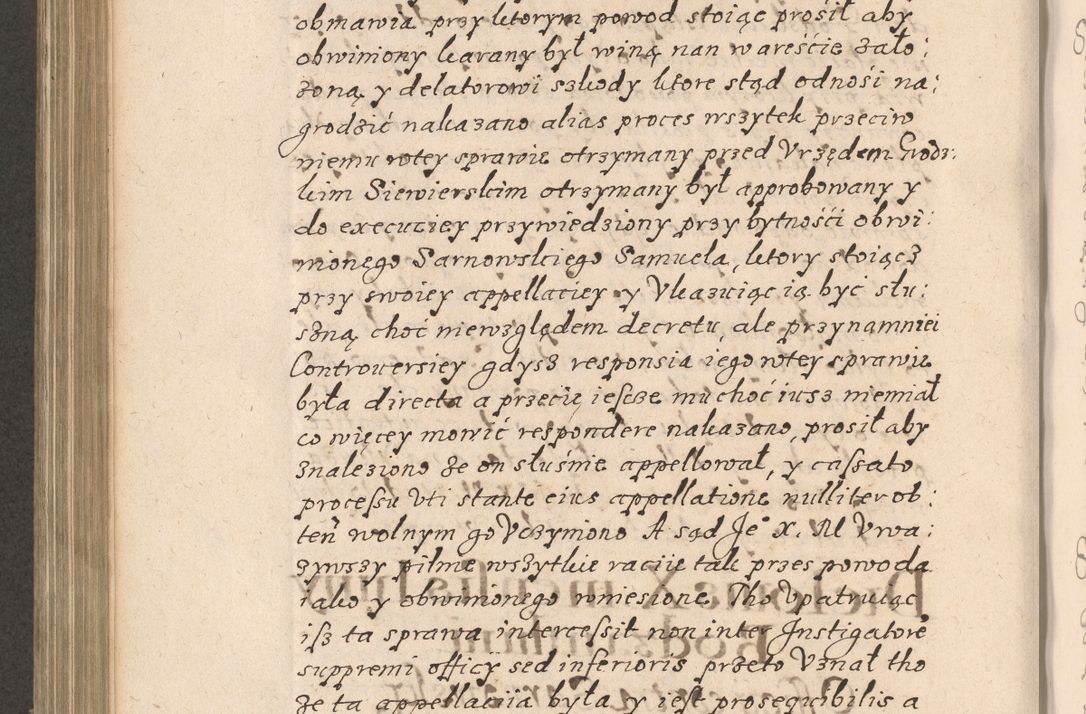 obmawia przy ktorym powod stoiąc prosił aby
obwiniony karany był winą nan w areście zało:
żoną, y delatorowi szkody ktore stąd odnośi na:
grodzić nakazano alias proces wszytek przeciw
niemu wtey sprawie otrzymany przed Vrzędem Grodz:
kim Siewierskim otrzymany był approbowany y
do executiey przywiedziony przy bytnośći obwi:
nionęgo Sarnowskiego Samuela, ktory stoiącz
przy swoiey appellaciey y Vkazuiąc ią być słu:
szną, choć niewzględem decretu, ale przynamniei
Controuersiey gdysz responsia iego wtey sprawie
była directa a przecię iescze mu choć iusz niemiał
co więcey mowić respondere nakazano, prosił aby
znaleziono że on słuśnie appellował, y cassato
processu vti stante eius appellatione nulliter ob:
ten wolnym go Vczyniono A sąd Je° X. M Vwa:
żywszy pilnie wszytkie raciie tak przes powoda
iako y obwinionego wniesione. Tho vpatruiąc
isz ta sprawa intercessit non inter Instigatore
suppremi officy sed inferioris przeto Vznał tho
że ta appellaciia była y iest prosequibilis a